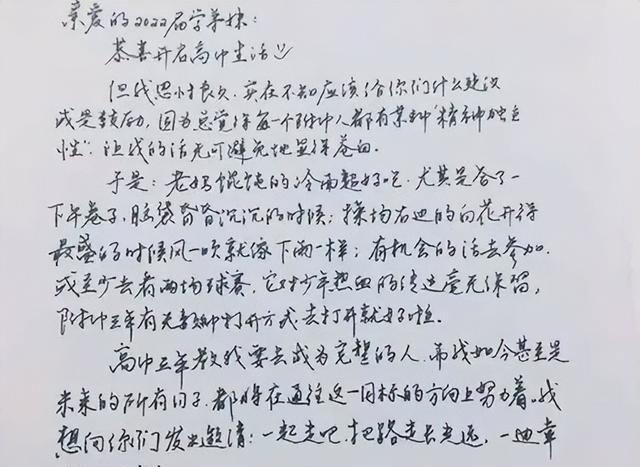 亲爱的2022届学弟妹:
恭喜开启高中生活
但我思忖良久,实在不知应该给你们什么建议
或是鼓励,因为总觉得每一个附中人都有某种"精神独立
性",让我的话无可避免地显得苍白。
于是:老妈馄饨的冷面超好吃,尤其是答了一
下午卷子,脑袋昏昏沉沉的时候;操场右边的白花开得
最盛的时候风一吹就像下雨一样;有机会的话去参加,
或至少去看两场球赛,它对少年热血的传达毫无保留,
附中三年有无数种打开方式,去打开就好啦。
高中三年教我要去成为完整的人,而我如今甚至是
未来的所有日子,都将在通往这一目标的方向上努力着。我
想向你们发出邀请:一起走吧,把路走长走远,一曲